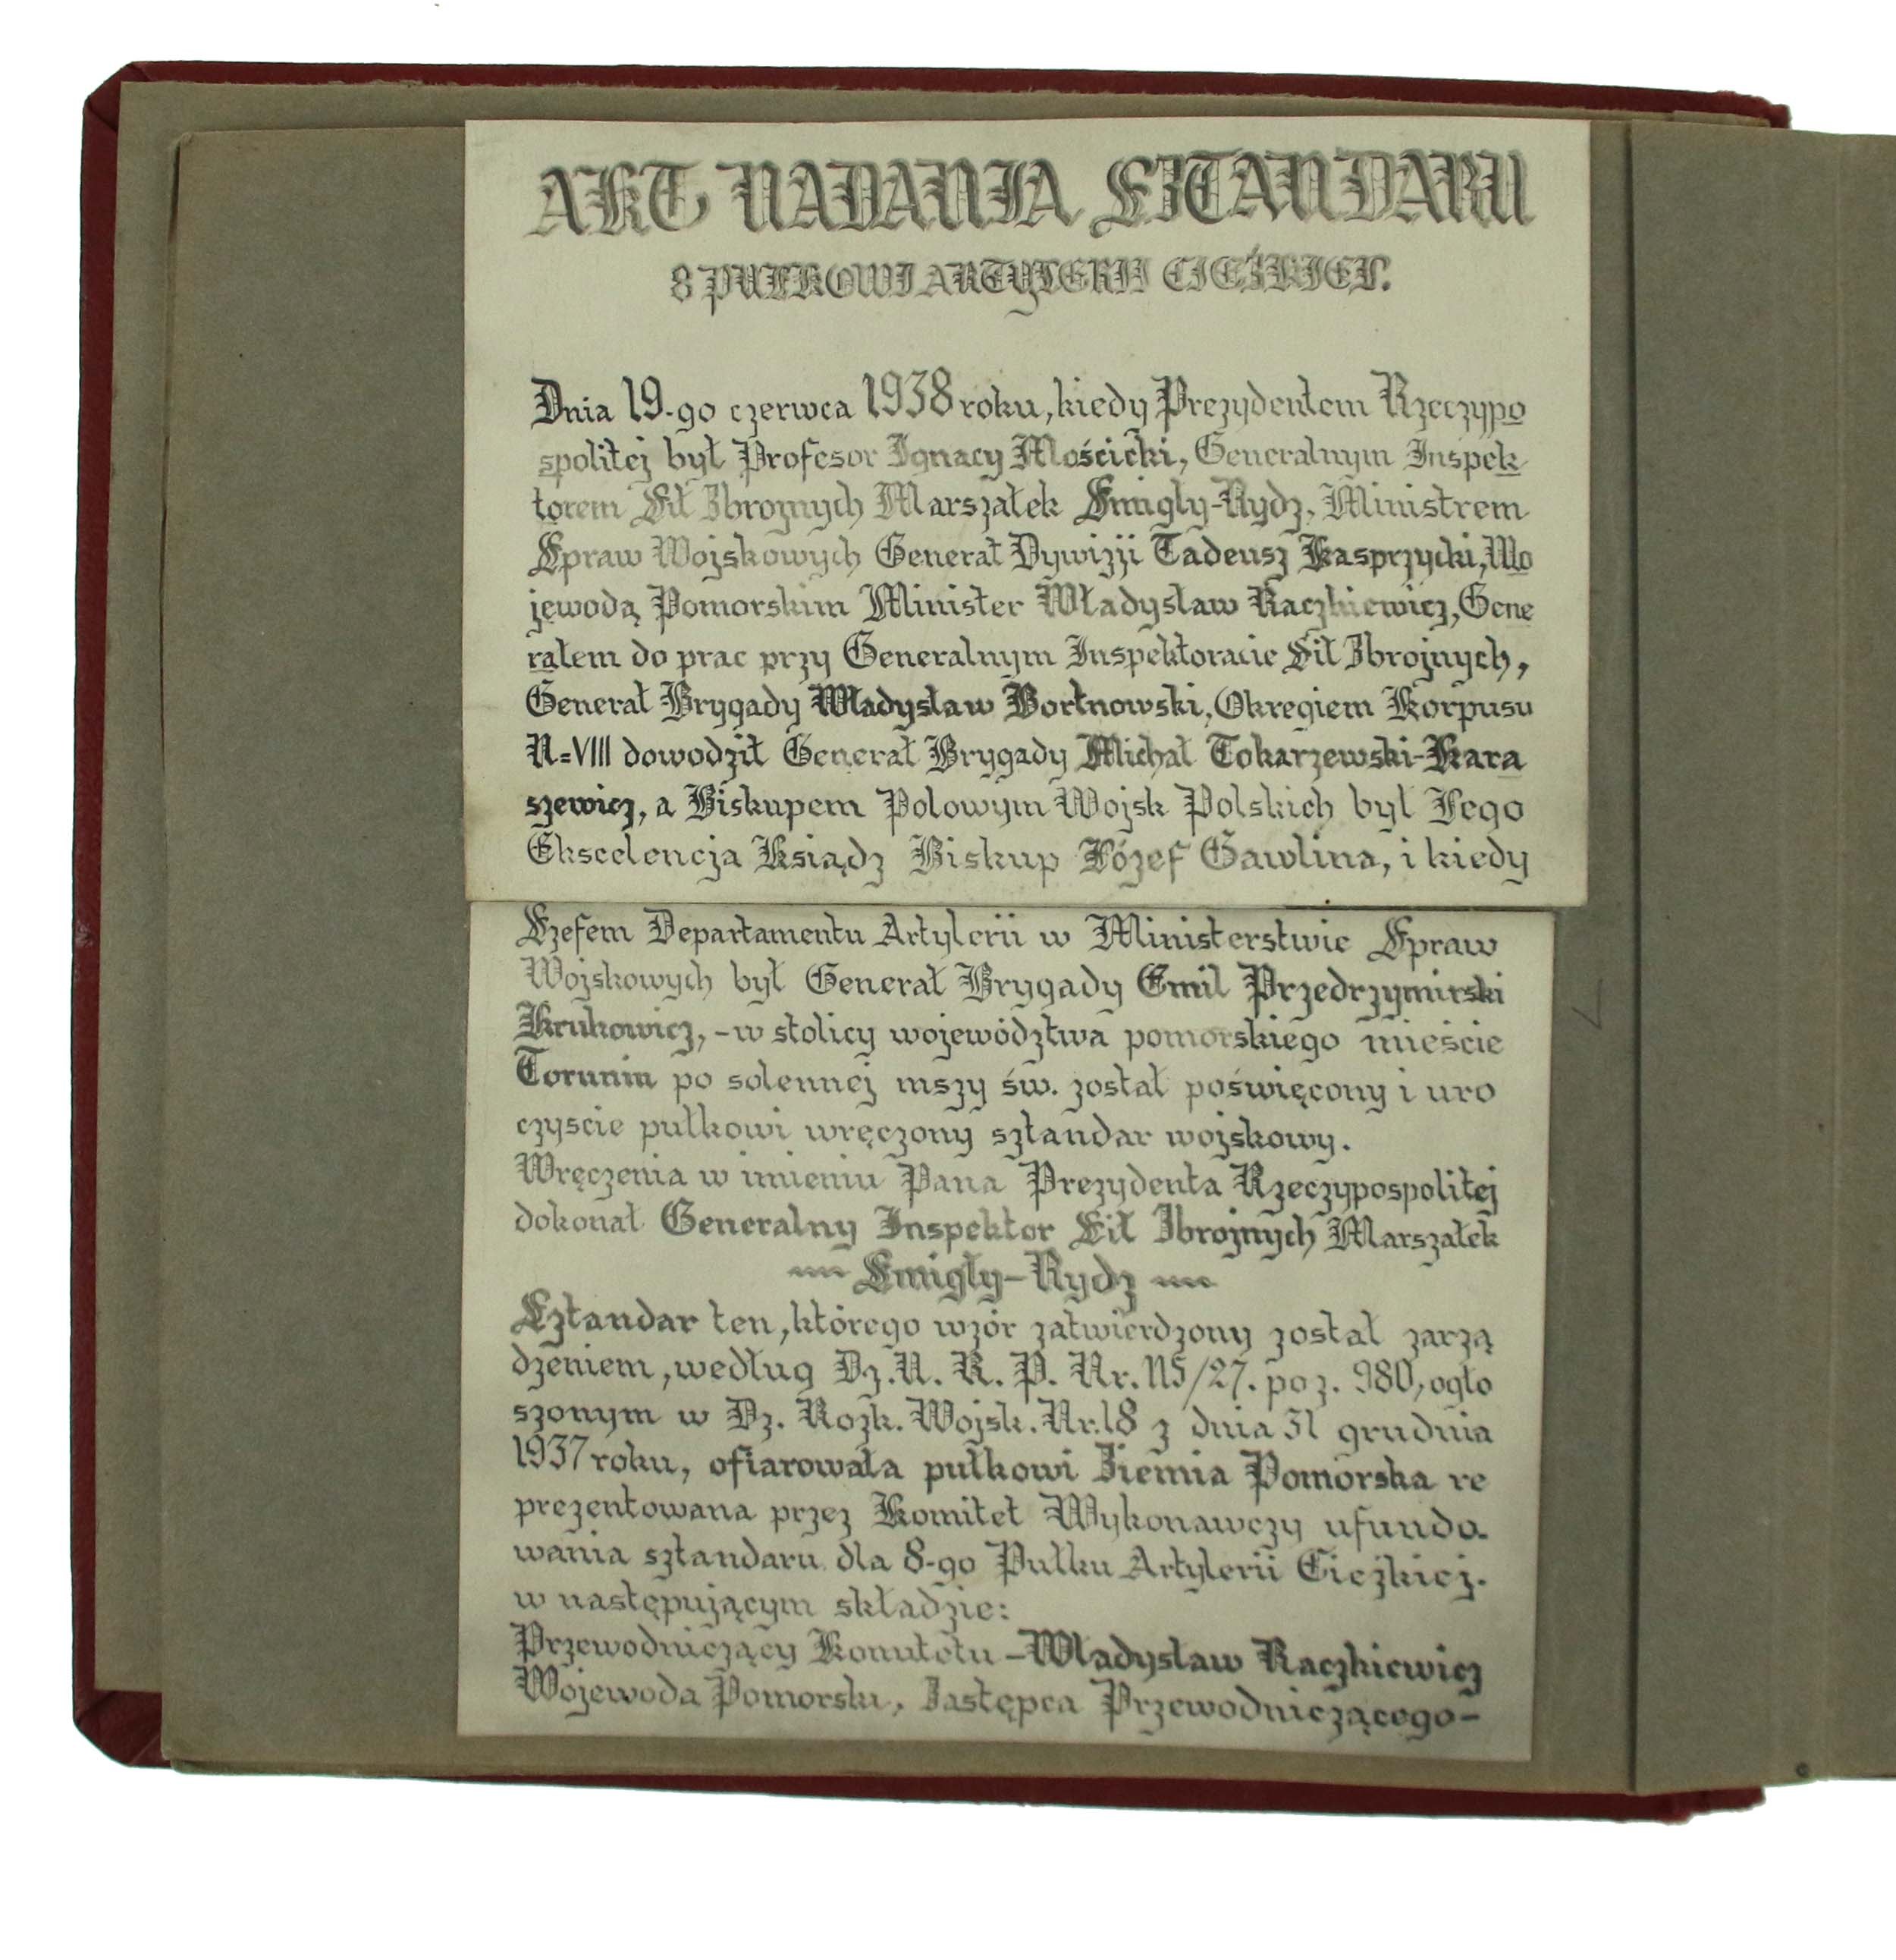 AKT NADANIA SZTANDARU
8 PUŁKOWI ARTYLERII CIĘŻKIEJ.
Dnia 19-go czerwca 1938 roku, kiedy Prezydentem Rzeczypo
spolitej był Profesor Ignacy Mościcki, Generalnym Inspek
torem Sił Zbrojnych Marszałek Śmigły-Rydz, Ministrem
Spraw Wojskowych Generał Dywizji Tadeusz Kasprzycki, Wo
jewodą Pomorskim Minister Władysław Raczkiewicz, Gene
rałem do prac przy Generalnym Inspektoracie Sił Zbrojnych,
Generał Brygady Władysław Bortnowski, Okręgiem Korpusu
N=VIII dowodził Generał Brygady Michał Tokarzewski-Kara
szewicz, a Biskupem Polowym Wojsk Polskich był Jego
Ekscelencja Ksiądz Biskup Józef Gawlina, i kiedy
Szefem Departamentu Artylerii w Ministerstwie Spraw
Wojskowych był Generał Brygady Emil Przedrzymirski
Krukowicz, - w stolicy województwa pomorskiego mieście
Toruniu po solennej mszy św. został poświęcony i uro
czyscie pułkowi wręczony sztandar wojskowy.
Wręczenia w imieniu Pana Prezydenta Rzeczypospolitej
dokonał Generalny Inspektor Sił Zbrojnych Marszałek
Śmigły-Rydz
Sztandar ten, którego wzór zatwierdzony został zarzą
dzeniem, według Dz. U. R. P. Nr. 115/27. poz. 980, ogło
szonym w Dz. Rozk. Wojsk. Nr. 18 z dnia 31 grudnia
1937 roku, ofiarowała pułkowi Ziemia Pomorska re
prezentowana przez Komitet Wykonawczy ufundo-
wania sztandaru dla 8-go Pułku Artylerii Ciężkiej.
w następującym składzie:
Przewodniczący Komitetu - Władysław Raczkiewicz
Wojewoda Pomorski, Zastępca Przewodniczącego -